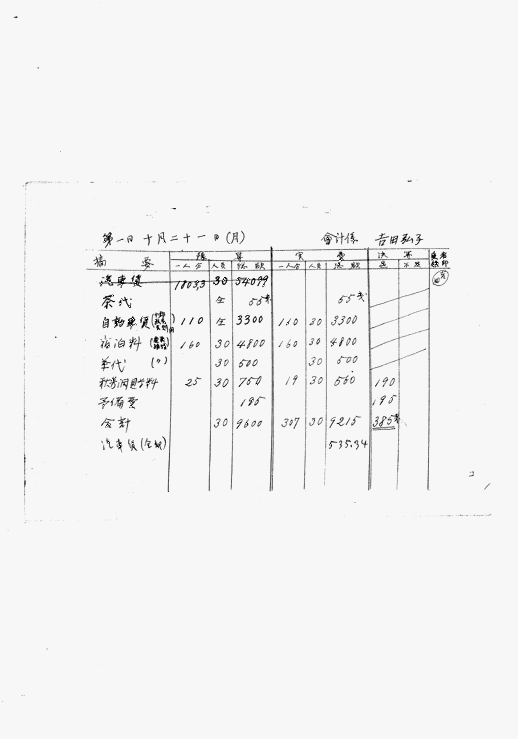 第一日 十月二十一日(月) 会計係 吉田弘子
摘要 予算 実費 決算
一人分 人員 総額 一人分 人員 総額 過 不足
汽車賃 18033 30 54099
茶代 全 55 55
自動車賃 110 全 3300 110 30 3300
宿泊料 160 30 4800 160 30 4800
茶代 (〃) 30 500 30 500
料 25 30 750 19 30 560 190
予備費 195 195
合計 30 9600 307 30 9215 385
汽車賃 53534